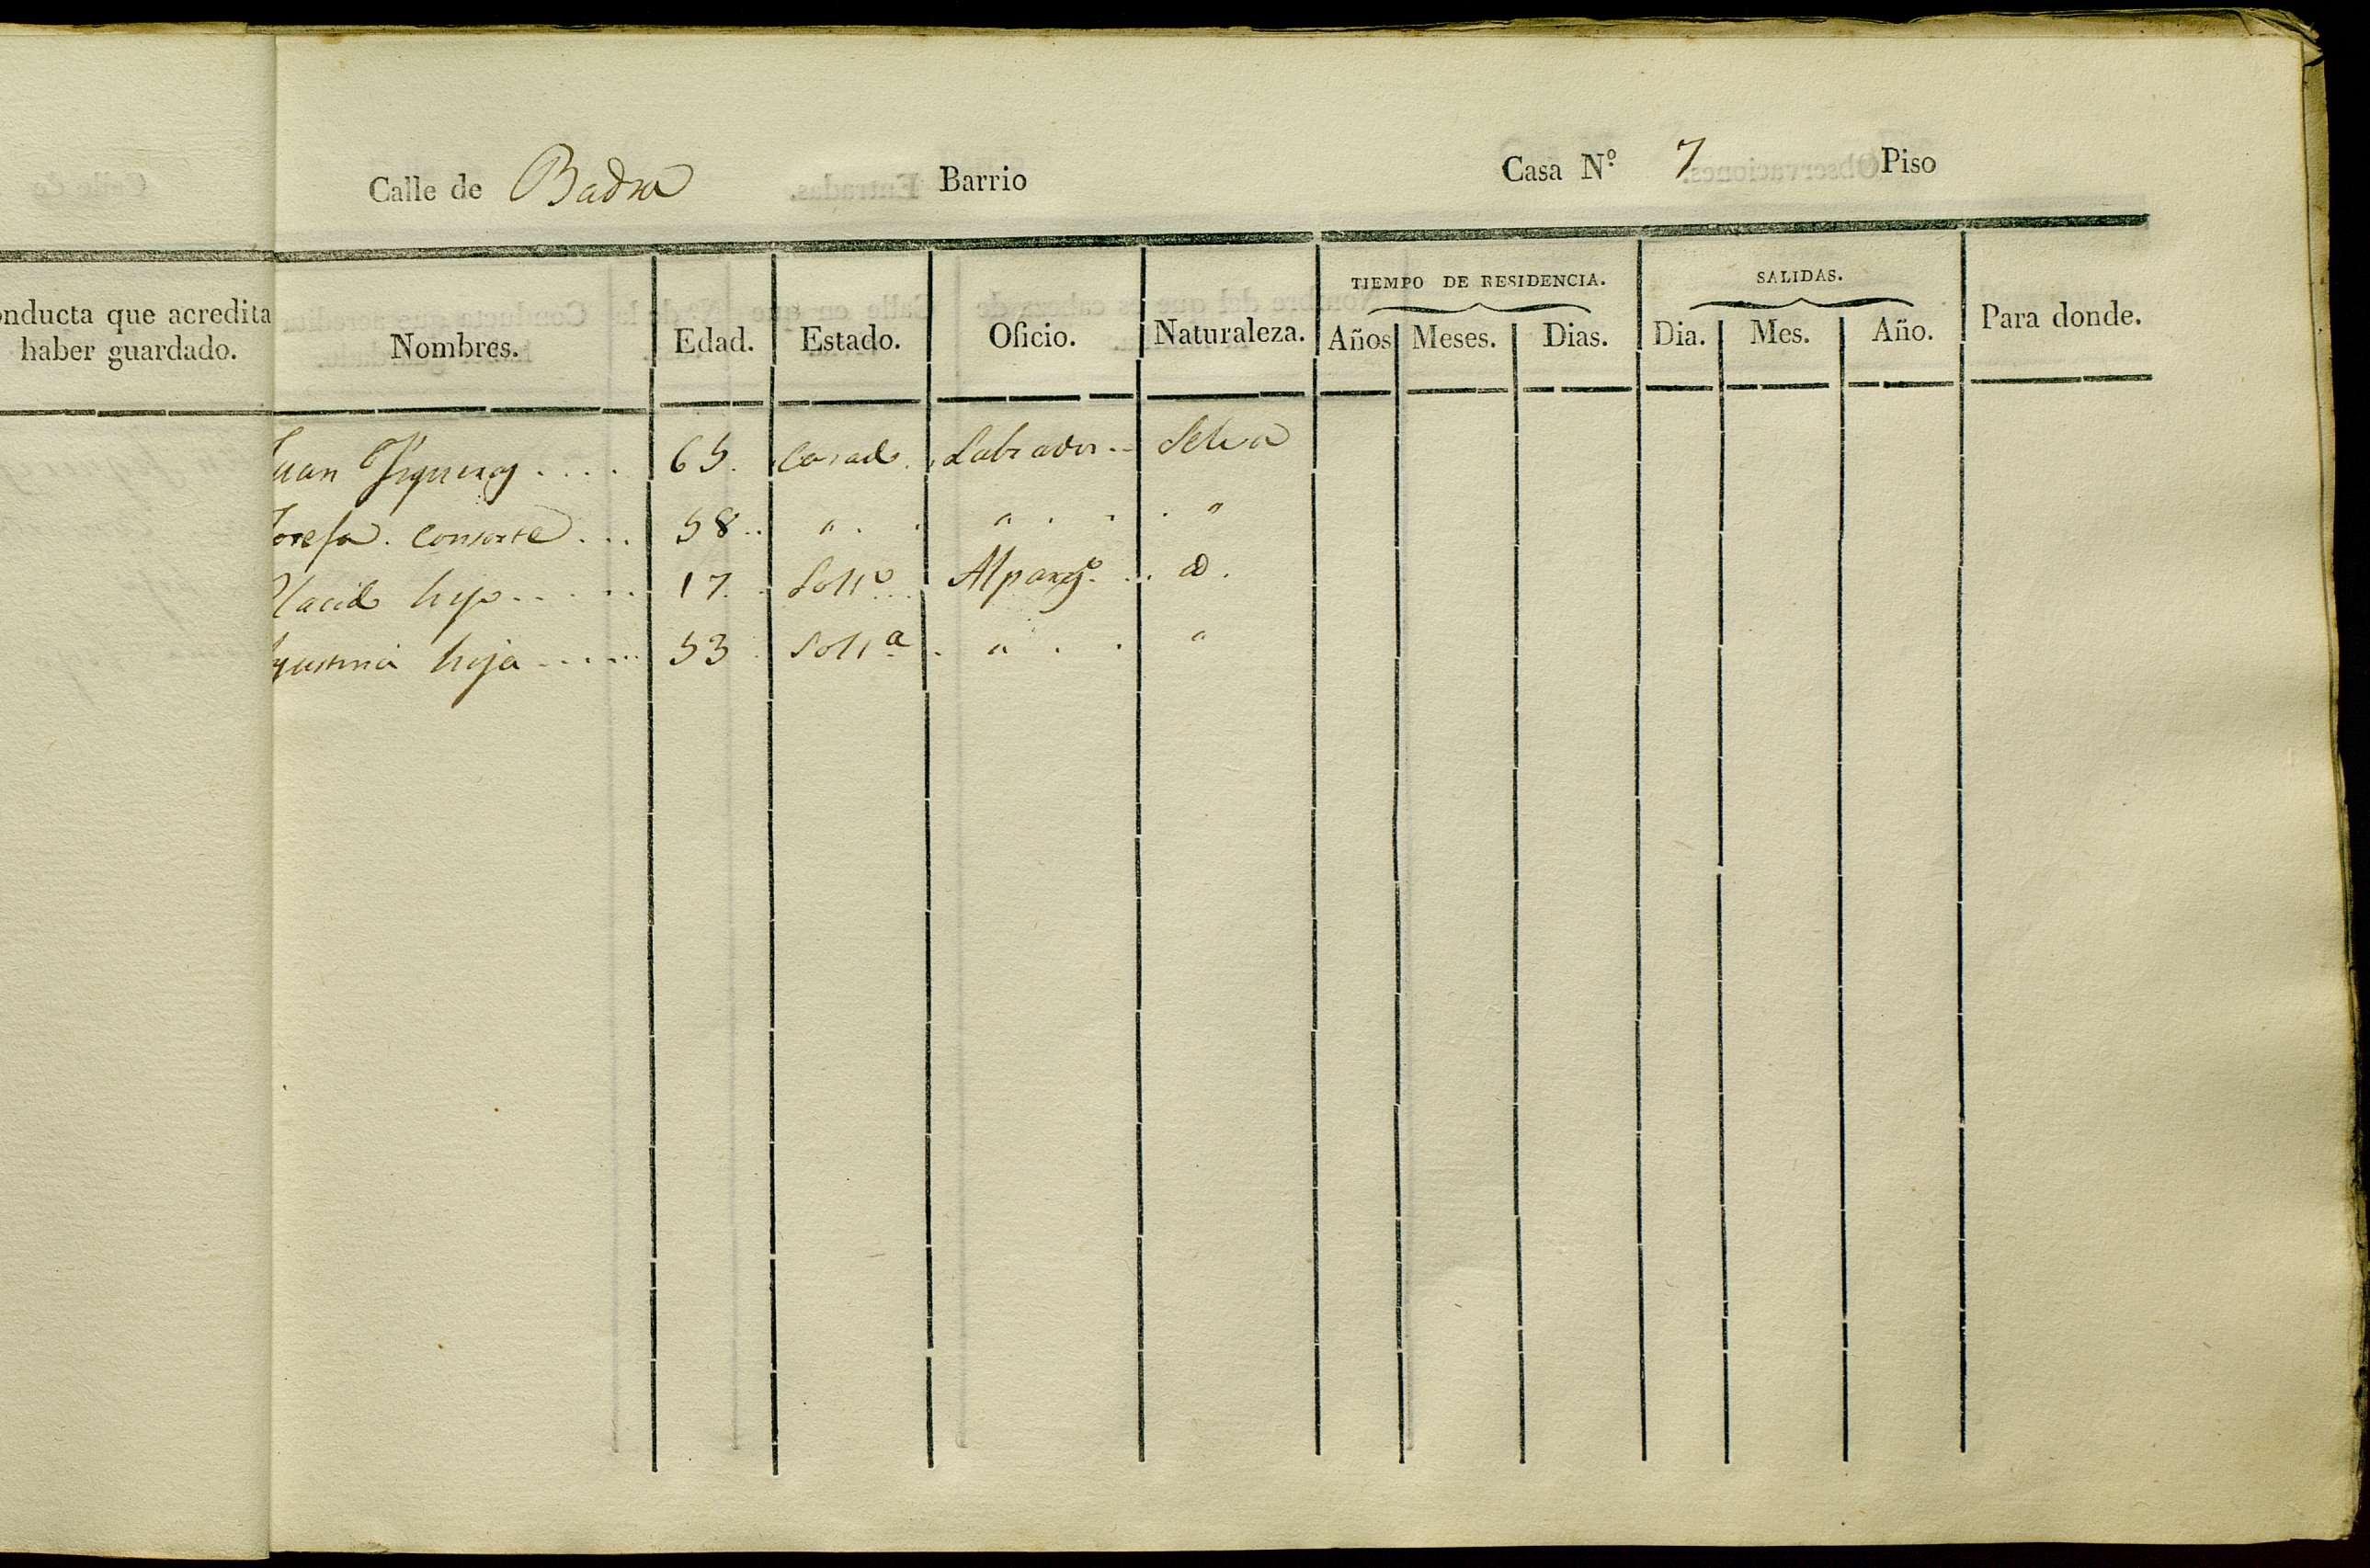 Calle de Badia Barrio Casa N.º 7 Piso
nducta que acredita
haber guardado.
TIEMPO DE RESIDENCIA. SALIDAS.
Nombres. Edad. Estado. Oficio. Naturaleza. Años Meses. Dias. Dia. Mes. Año. Para donde.
Juan .... 65. Casado Labrador.. Selva
Josefa. Consorte... 58.. " . . " . . . "
Placido hijo..... 17.. Solt.º... Alparg.º... id.
Agustina hija..... 53. Solt.ª . " . . "